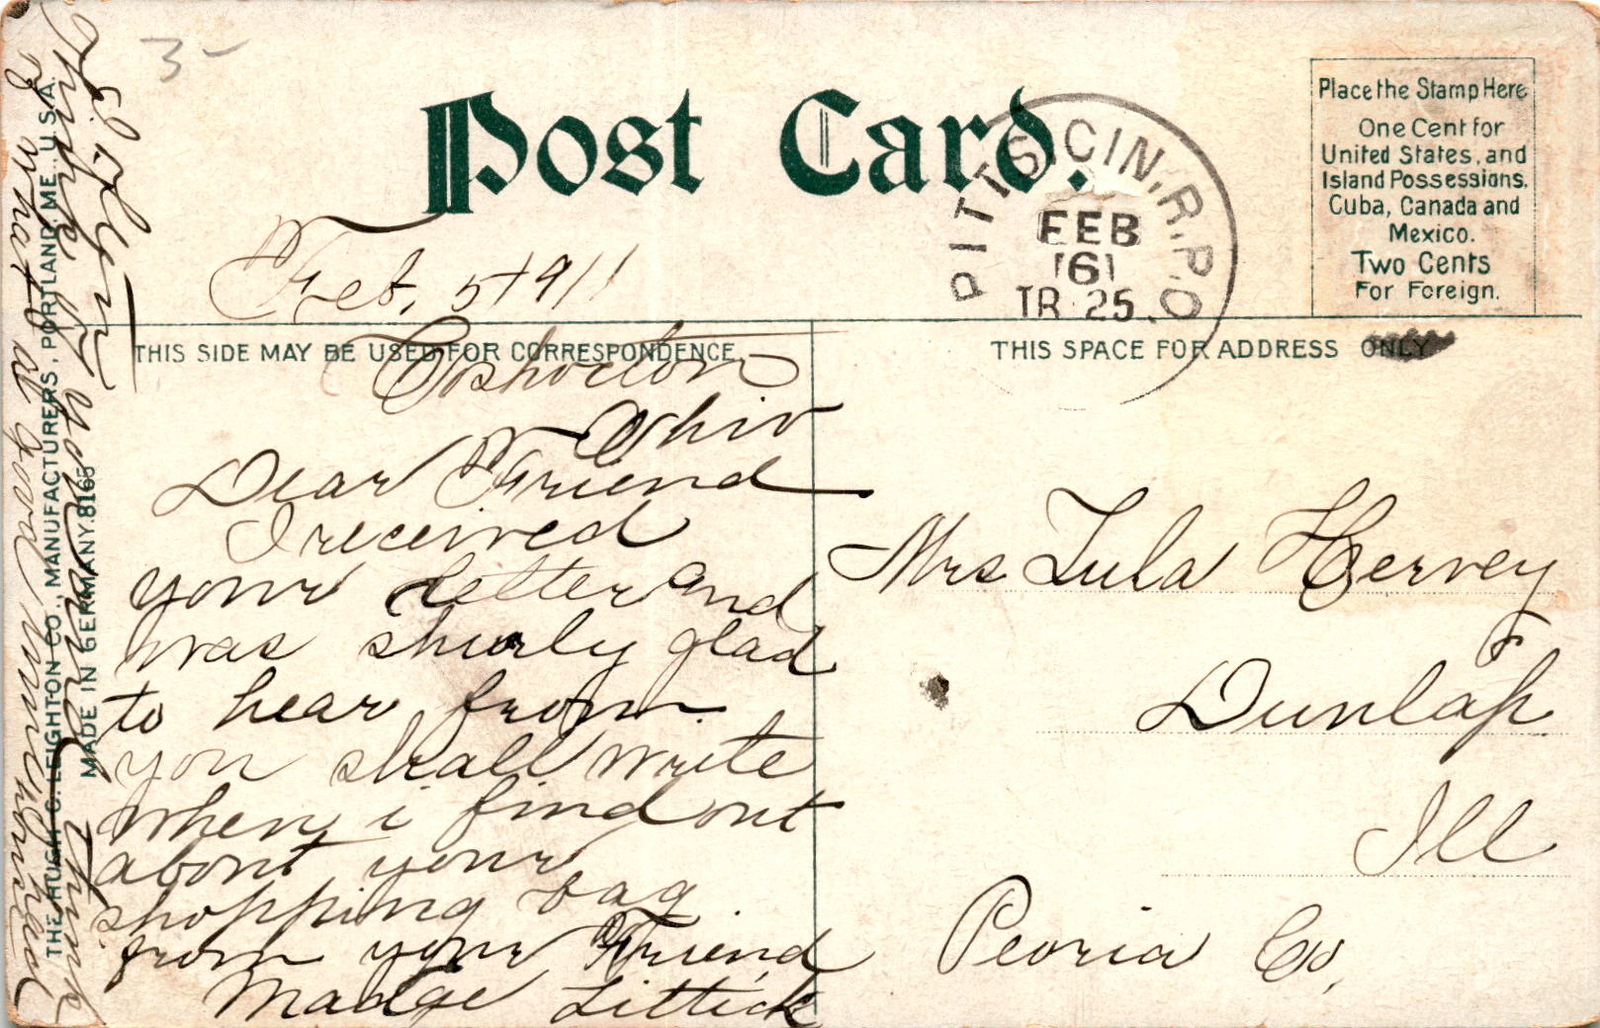 3-
Post Card.
PITTS. CIN. R.P.O.
FEB
6
TR 25.
Place the Stamp Here
One Cent for
United States, and
Island Possessions,
Cuba, Canada and
Mexico.
Two Cents
For Foreign.
Feb, 5 1911
THIS SIDE MAY BE USED FOR CORRESPONDENCE
THIS SPACE FOR ADDRESS ONLY
Coshocton
Ohio
Dear Friend
I received
your letter and
was shurly glad
to hear from
you shall write
when i find out
about your
shopping bag
from your Friend
Madge Littick
Mrs Lula Hervey
Dunlap
Ill
Peoria Co,
THE HUGH C. LEIGHTON CO., MANUFACTURERS, PORTLAND, ME., U.S.A.
MADE IN GERMANY. 8165
think
of what